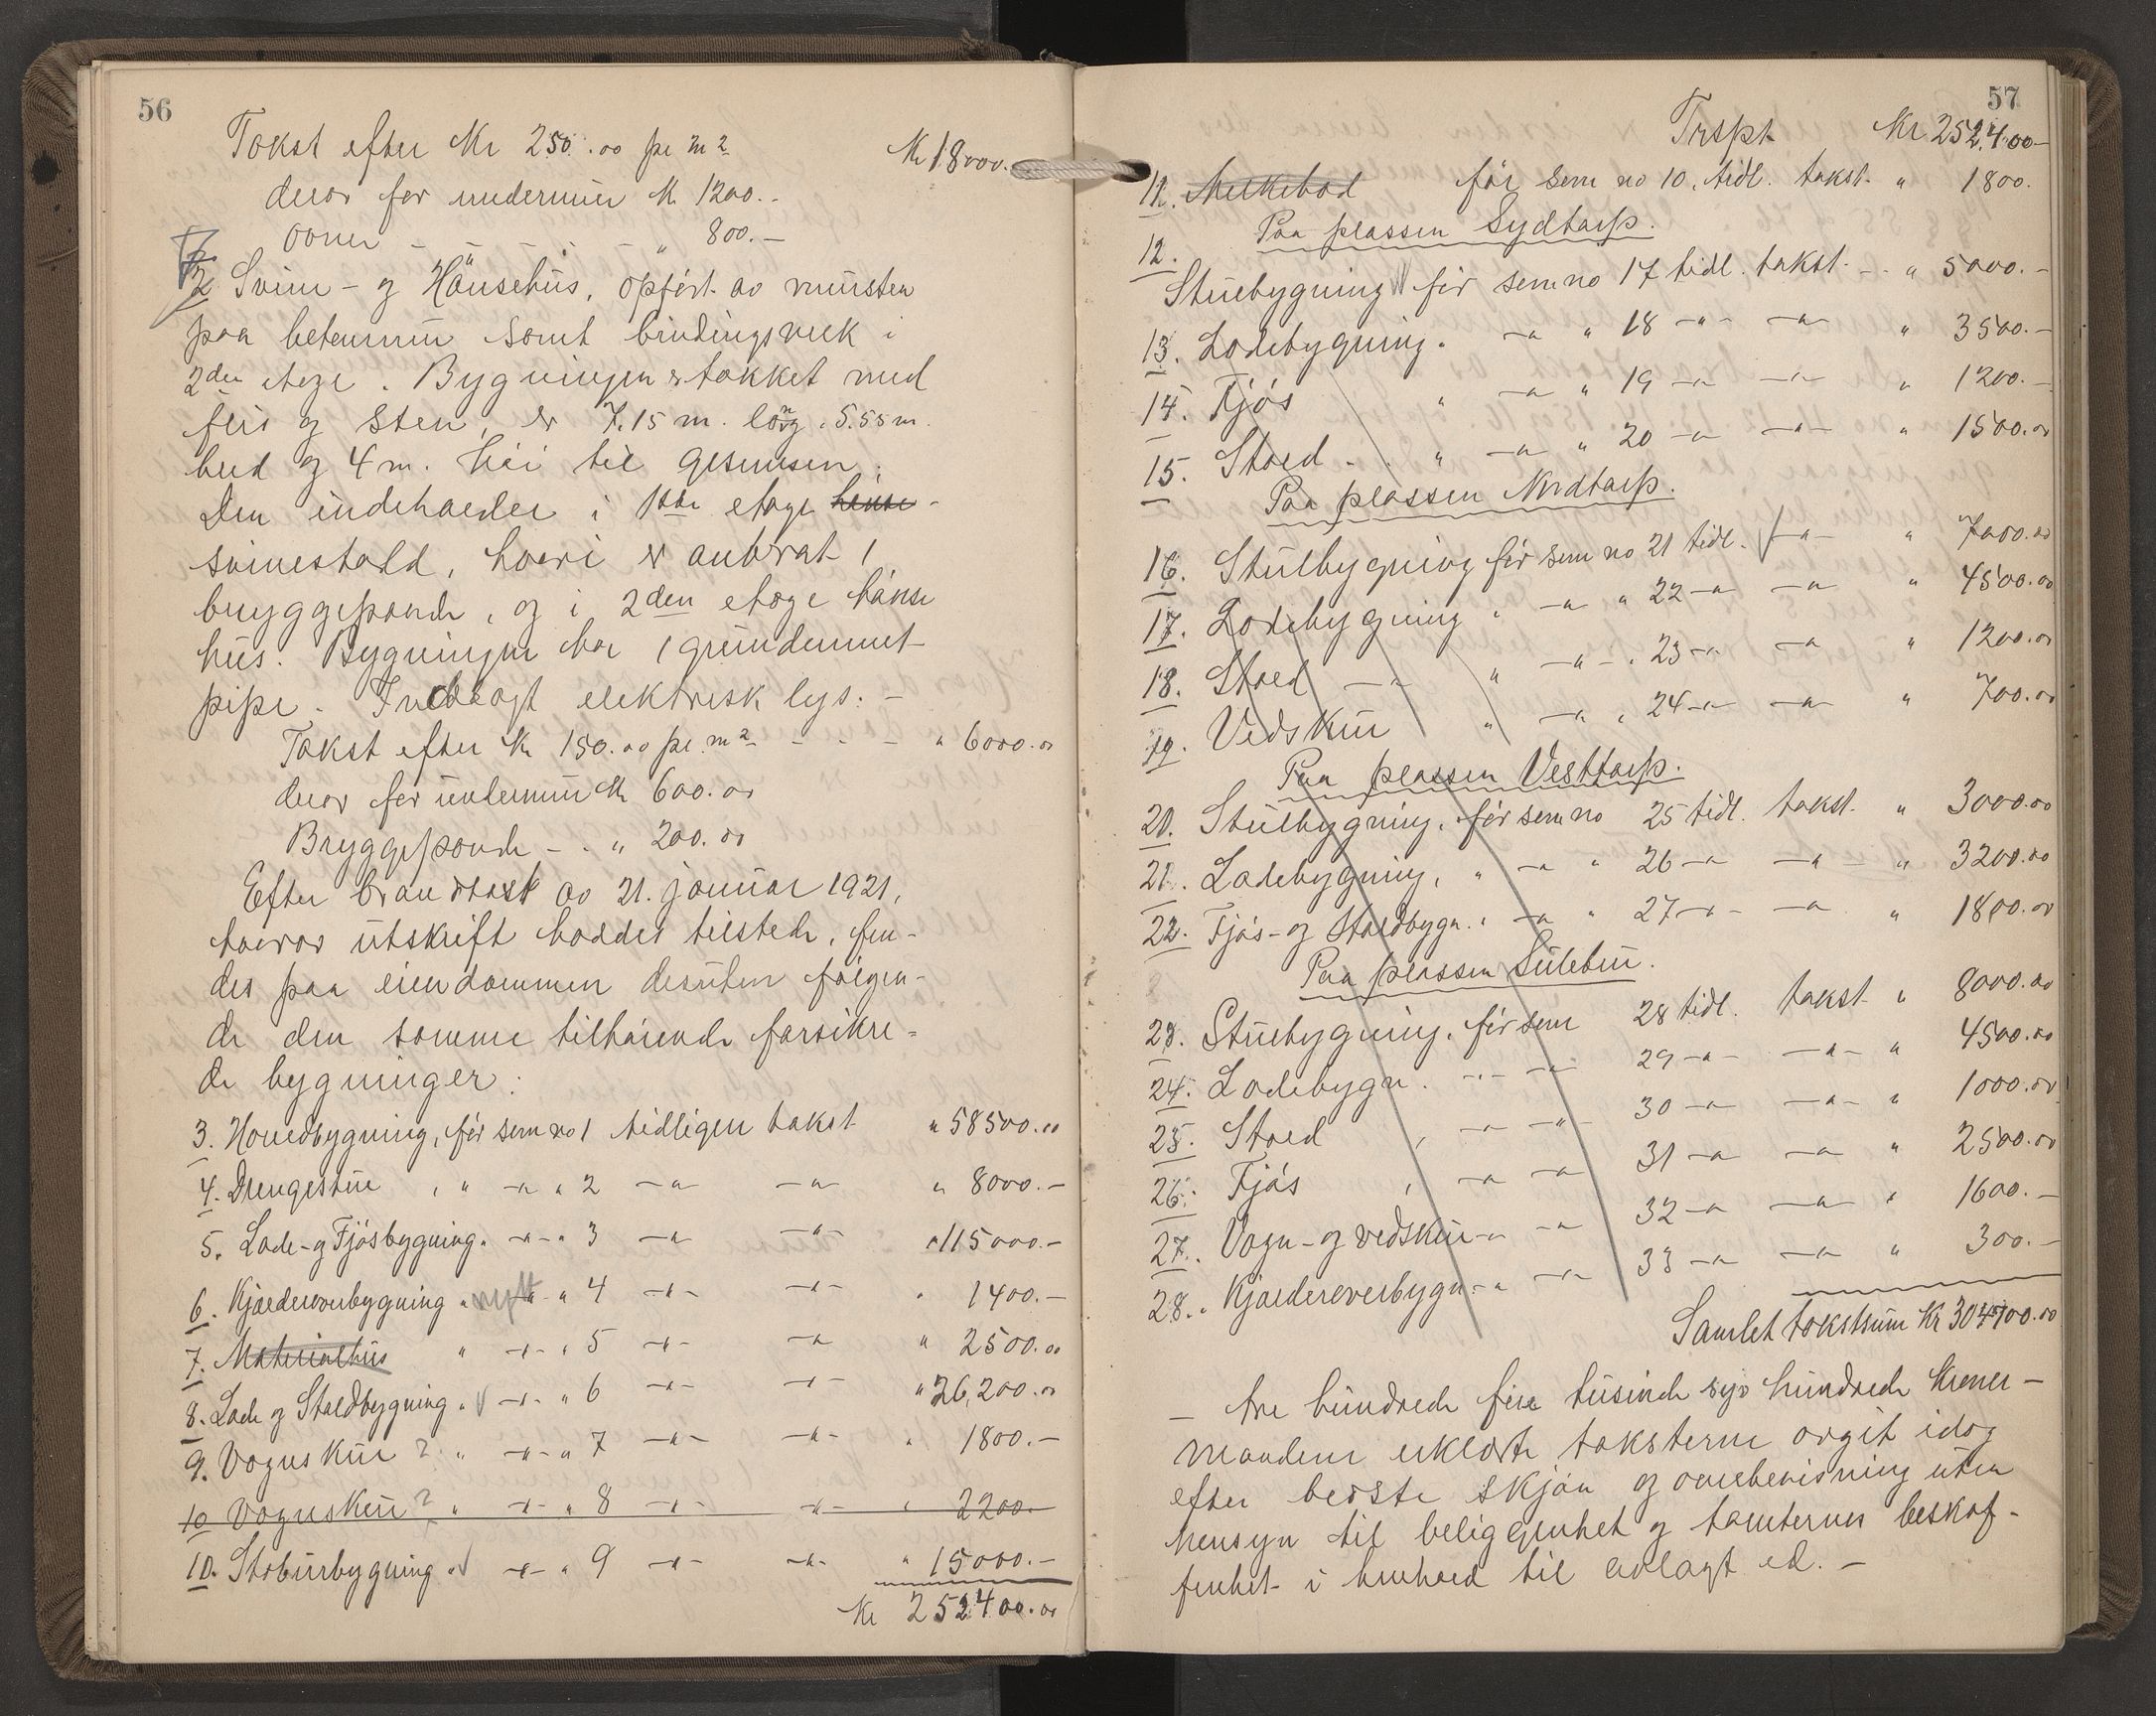 56
Takst efter Kr 250.00 pr m² Kr 18000.
derav for undermur Kr 1200.-
ovner - - - - " 800.-
2 Svine- og Hønsehus, opført av mursten
paa betonmur samt bindingsverk i
2den etage. Bygningen er tækket med
flis og sten, er 7.15 m. lang, 5.55 m.
bred og 4 m. høi til gesimsen.
Den indeholder i 1ste etage hønse-
svinestald, hvori er anbrat 1
bryggepande, og i 2den etage hønse
hus. Bygningen har 1 grundmuret
pipe. Indlagt elektrisk lys. -
Takst efter Kr 150.00 pr. m² - - - " 6000.00
derav for undermur Kr 600.00
Bryggepande - - " 200.00
Efter brandtakst av 21. januar 1921,
hvorav utskrift haddes tilstede, fin-
des paa eiendommen desuten følgen-
de den samme tilhørende forsikre-
de bygninger:
3. Hovedbygning, før sem no 1 tidligere takst " 58500.00
4. Drengestue , " -"- " 2 -"- -"- " 8000.-
5. Lade- og Fjøsbygning. -"- " 3 -"- -"- " 115000.-
6. Kjælderoverbygning " nytt -"- " 4 -"- -"- " 1400.-
7. Materialhus " -"- " 5 -"- -"- " 2500.00
8. Lade og Staldbygning " √ -"- " 6 -"- -"- " 26,200.00
9. Vognskur ? " -"- " 7 -"- -"- " 1800.-
10 Vognskur ? " -"- " 8 -"- -"- " 2200.-
10. Stabursbygning " √ -"- " 9 -"- -"- " 15000.-
Kr 252400.00
57
Trspt. Kr. 252,400-
11. Melkebod før sem no 10. tidl. takst. " 1800.
Paa plassen Sydtorp.
12.
Stuebygning √ før sem no 17 tidl. takst. - " 5000.-
13. Ladebygning. -"- " 18 -"- -"- " 3500.-
14. Fjøs " -"- " 19 -"- -"- " 1200.-
15. Stald - . " -"- " 20 -"- -"- " 1500.00
Paa plassen Nordtorp.
16. Stuebygning før sem no 21 tidl. √ -"- " 7000.00
17. Ladebygning " -"- " 22 -"- -"- " 4500.00
18. Stald -"- " -"- " 23 -"- -"- " 1200.00
19. Vedskur " -"- " 24 -"- -"- " 700.00
Paa plassen Vesttorp.
20. Stuebygning, før sem no 25 tidl. takst. " 3000.00
21. Ladebygning, " -"- " 26 -"- -"- " 3200.00
22. Fjøs- og Staldbygn. " -"- " 27 -"- -"- " 1800.00
Paa plassen Sulebu.
23. Stuebygning, før sem 28 tidl. takst " 8000.00
24. Ladebygn. -"- -"- 29 -"- -"- " 4500.00
25. Stald , -"- -"- 30 -"- -"- " 1000.00
26. Fjøs , -"- -"- 31 -"- -"- " 2500.00
27. Vogn- og vedskur -"- -"- 32 -"- -"- " 1600.-
28. Kjælderoverbygn -"- -"- 33 -"- -"- " 300.-
Samlet takstsum Kr 304700.00
- tre hundrede fire tusinde syv hundrede kroner -
Mændene erklærte taksterne avgit idag
efter bedste skjøn og overbevisning uten
hensyn til beliggenhet og tomternes beskaf-
fenhet i henhold til avlagt ed. -